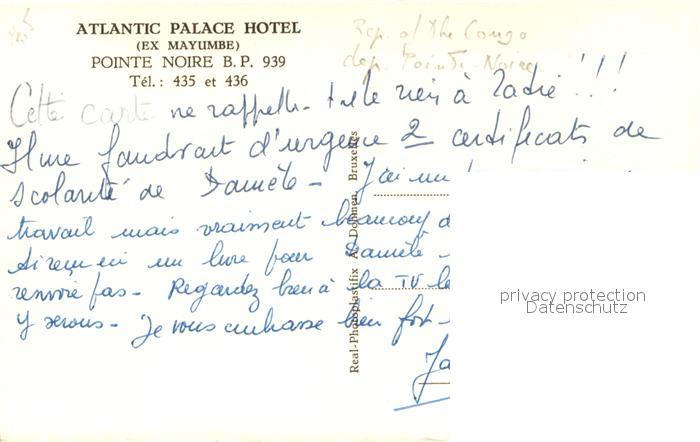 ATLANTIC PALACE HOTEL
(EX MAYUMBE)
POINTE NOIRE B.P. 939
Tél.: 435 et 436
Rep. of the Congo
dep. Pointe-Noire
Cette carte ne rappelle-t-elle rien à !!!
Il me faudrait d'urgence 2 certificats de
scolarité de Danièle - J'ai un
travail mais vraiment beaucoup d
un livre pour Danièle -
renvoie pas - Regardez bien à la TV le
y serons - Je vous embrasse bien fort -
Ja
Real-Photoplastifix A. Dohmen, Bruxelles
privacy protection
Datenschutz